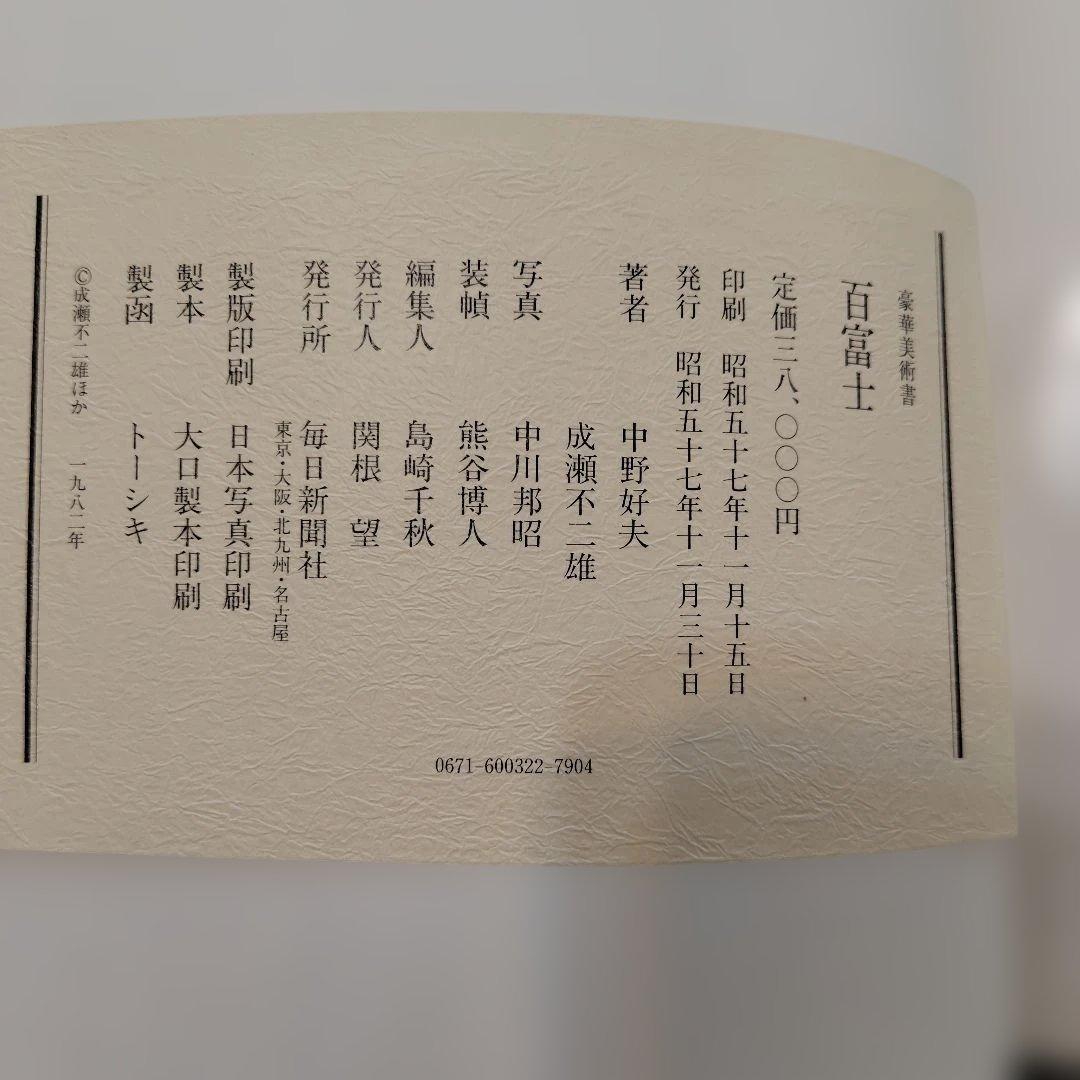 豪華美術書
百富士
定価三八、〇〇〇円
印刷 昭和五十七年十一月十五日
発行 昭和五十七年十一月三十日
著者 中野好夫
成瀬不二雄
写真 中川邦昭
装幀 熊谷博人
編集人 島崎千秋
発行人 関根 望
発行所 毎日新聞社
東京・大阪・北九州・名古屋
製版印刷 日本写真印刷
製本 大口製本印刷
製函 トーシキ
©成瀬不二雄ほか 一九八二年
0671-600322-7904